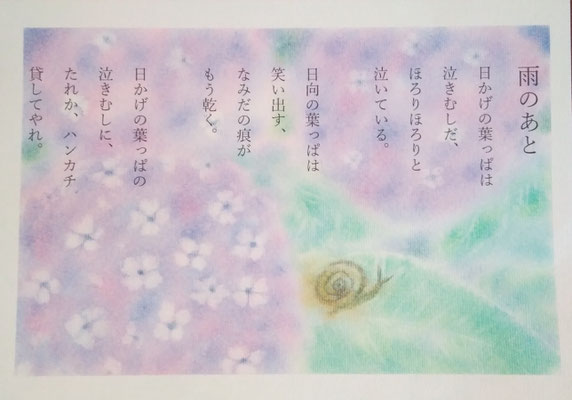 雨のあと
日かげの葉っぱは
泣きむしだ、
ほろりほろりと
泣いている。
日向の葉っぱは
笑い出す、
なみだの痕が
もう乾く。
日かげの葉っぱの
泣きむしに、
たれか、ハンカチ
貸してやれ。